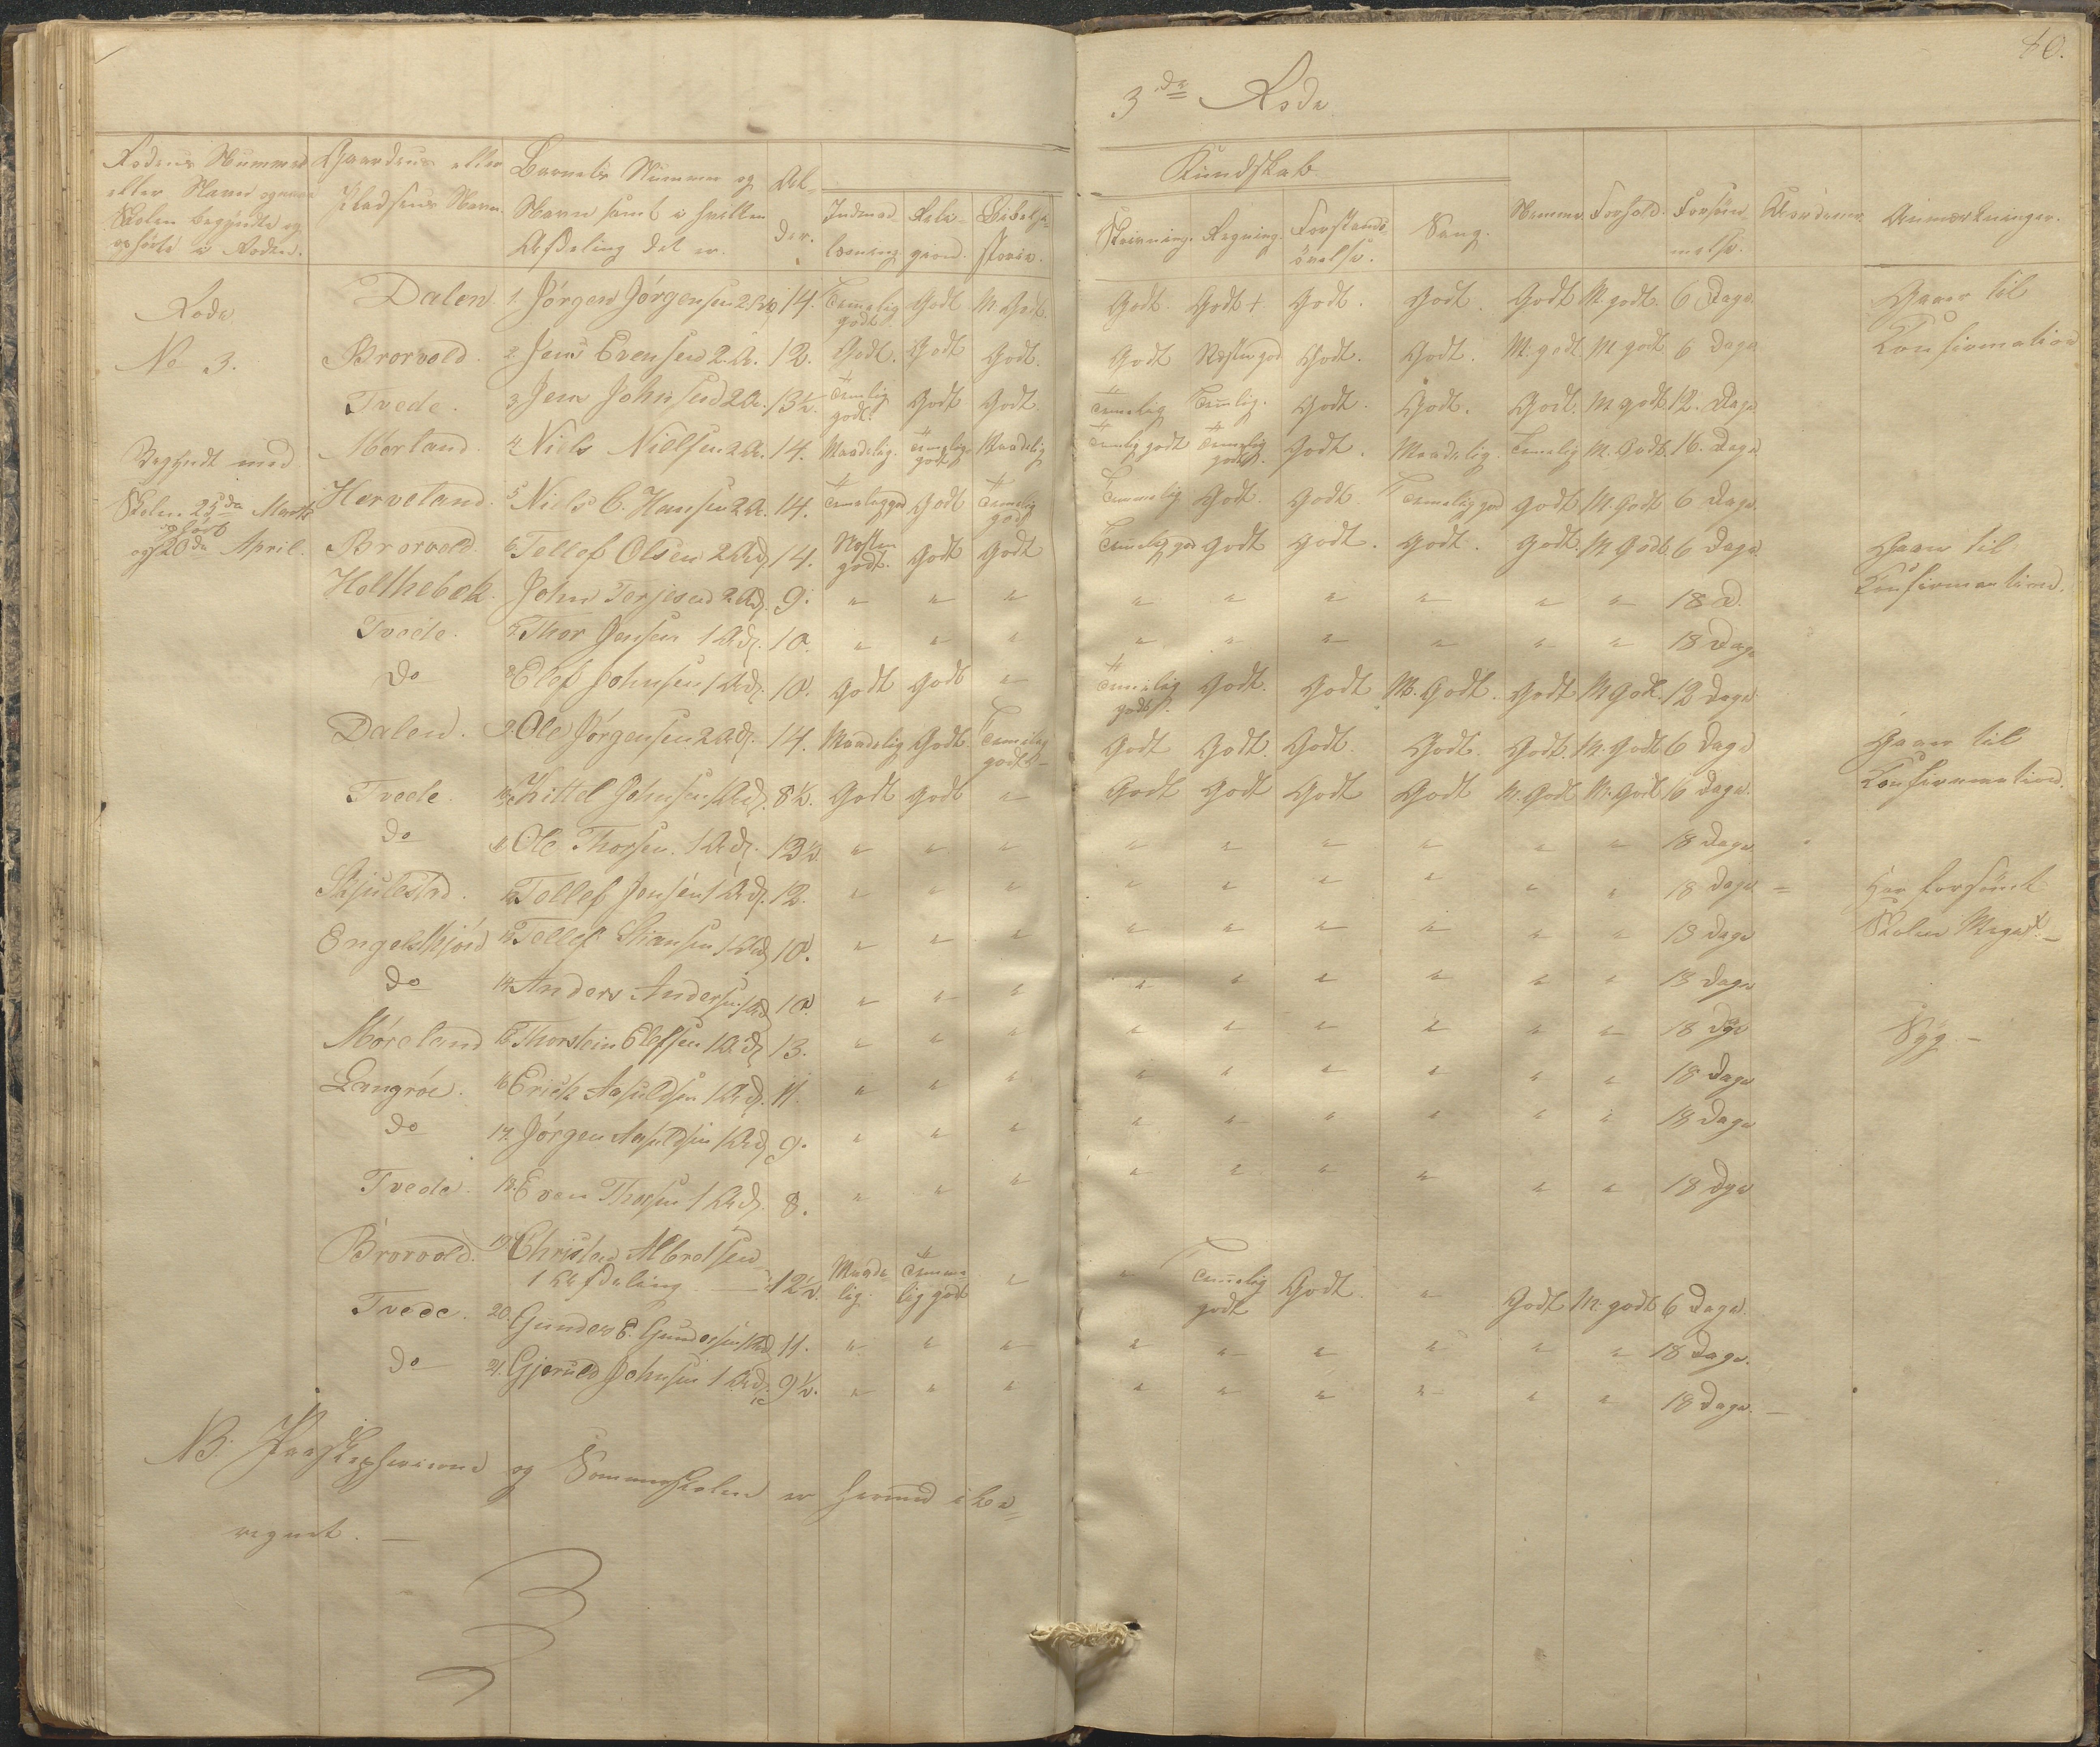 40.
3die Rode
Rodens Nummer eller Navn og naar Skolen begyndte og ophörte i Roden.
Gaardens eller Pladsens Navn.
Barnets Nummer og Navn samt i hvilken Afdeling det er.
Alder.
Kundskab
Indenadlæsning. Religion. Bibelhistorie. Skrivning. Regning. Forstandsövelse. Sang. Nemme. Forhold. Forsömmelse. Anmærkninger.
Rode
No 3.
Begyndt med Skolen 25de Marts og ophört 20de April.
Dalen. 1. Jörgen Jörgensen 2 Afd 14. Temmelig godt. Godt M. Godt. Godt. Godt + Godt. Godt. Godt M. godt. 6 Dage. Gaaer til Konfirmation
Brorvold. 2. Jens Evensen 2. A. 12. Godt. Godt Godt. Godt Næsten god Godt. Godt. M. godt M. godt 6 Dage
Tvede. 3 Jens Johnsen 2 A. 13½. Temlig godt. Godt Godt. Temelig Temlig. Godt. Godt. Godt. M godt. 12. Dage
Mørland. 4 Niels Nielsen 2 A. 14. Maadelig. Temelig godt Maadelig Temlig godt Temelig godt. Godt. Maadelig. Temelig M. Godt. 16. Dage
Herveland. 5 Niels C. Hansen 2 A. 14. Temelig god Godt Temelig godt Temmelig Godt. Godt. Temelig god Godt M. Godt 6 Dage
Brorvold 6 Tellef Olsen 2 Afd 14. Næsten godt. Godt Godt Temelig god Godt Godt. Godt. Godt. M Godt. 6 Dage Gaaer til Konfirmation.
Holthebek. John Terjesen 2 Afd. 9. " " " " " " " " " 18 D.
Tvede. 7 Thor Jensen 1 Afd. 10. " " " " " " " " " 18 Dage
do 8 Elef Johnsen 1 Afd. 10. Godt Godt " Temelig godt. Godt. Godt M. Godt. Godt M Godt. 12 Dage
Dalen. 9. Ole Jörgensen 2 Afd. 14. Maadelig Godt. Temelig godt Godt Godt. Godt. Godt. Godt. M. Godt 6 Dage Gaaer til Konfirmation.
Tvede. 10 Kittel Johnsen 1 Afd. 8½. Godt Godt " Godt Godt Godt Godt M. Godt M. Godt 6 Dage.
do 11 Ole Thorsen. 1 Afd. 13½. " " " " " " " " " 18 Dage
12 Tellef Jensen 1 Afd. 12. " " " " " " " " " 18 Dage Har forsömt Skolen Meget.
13 Tellef 1 Afd 10. " " " " " " " " " 18 Dage
do 14 Anders Andersen 1 Afd 10. " " " " " " " " " 18 Dage
Møreland 15 Thorstein Elefsen 1 Afd 13. " " " " " " " " " 18 Dge Syg.
Langröe. 16 Erich Aasuldsen 1 Afd. 11. " " " " " " " " " 18 Dage
do 17. Jörgen Aasuldsen 1 Afd 9. " " " " " " " " " 18 Dage
Tvede. 18. Even Thorsen 1 Afd. 8. " " " " " " " " " 18 Dge
Brorvold. 19 Christen Albretsen 1 Afdeling 12½. Maadelig. Temmelig godt " " Temelig godt Godt. " Godt M. godt 6 Dage.
Tvede. 20. Gunder E. Gundersen 1 Afd 11. " " " " " " " " " 18 Dage.
do 21. Gjeruld Johnsen 1 Afd. 9½. " " " " " " " " " 18 Dage.
NB. og Sommerskolen er hermed ikke
regnet.